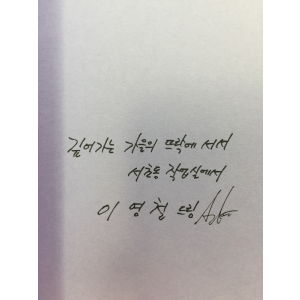 깊어가는 가을의 뜨락에 서서
서초동 작업실에서
이 영 철 드림